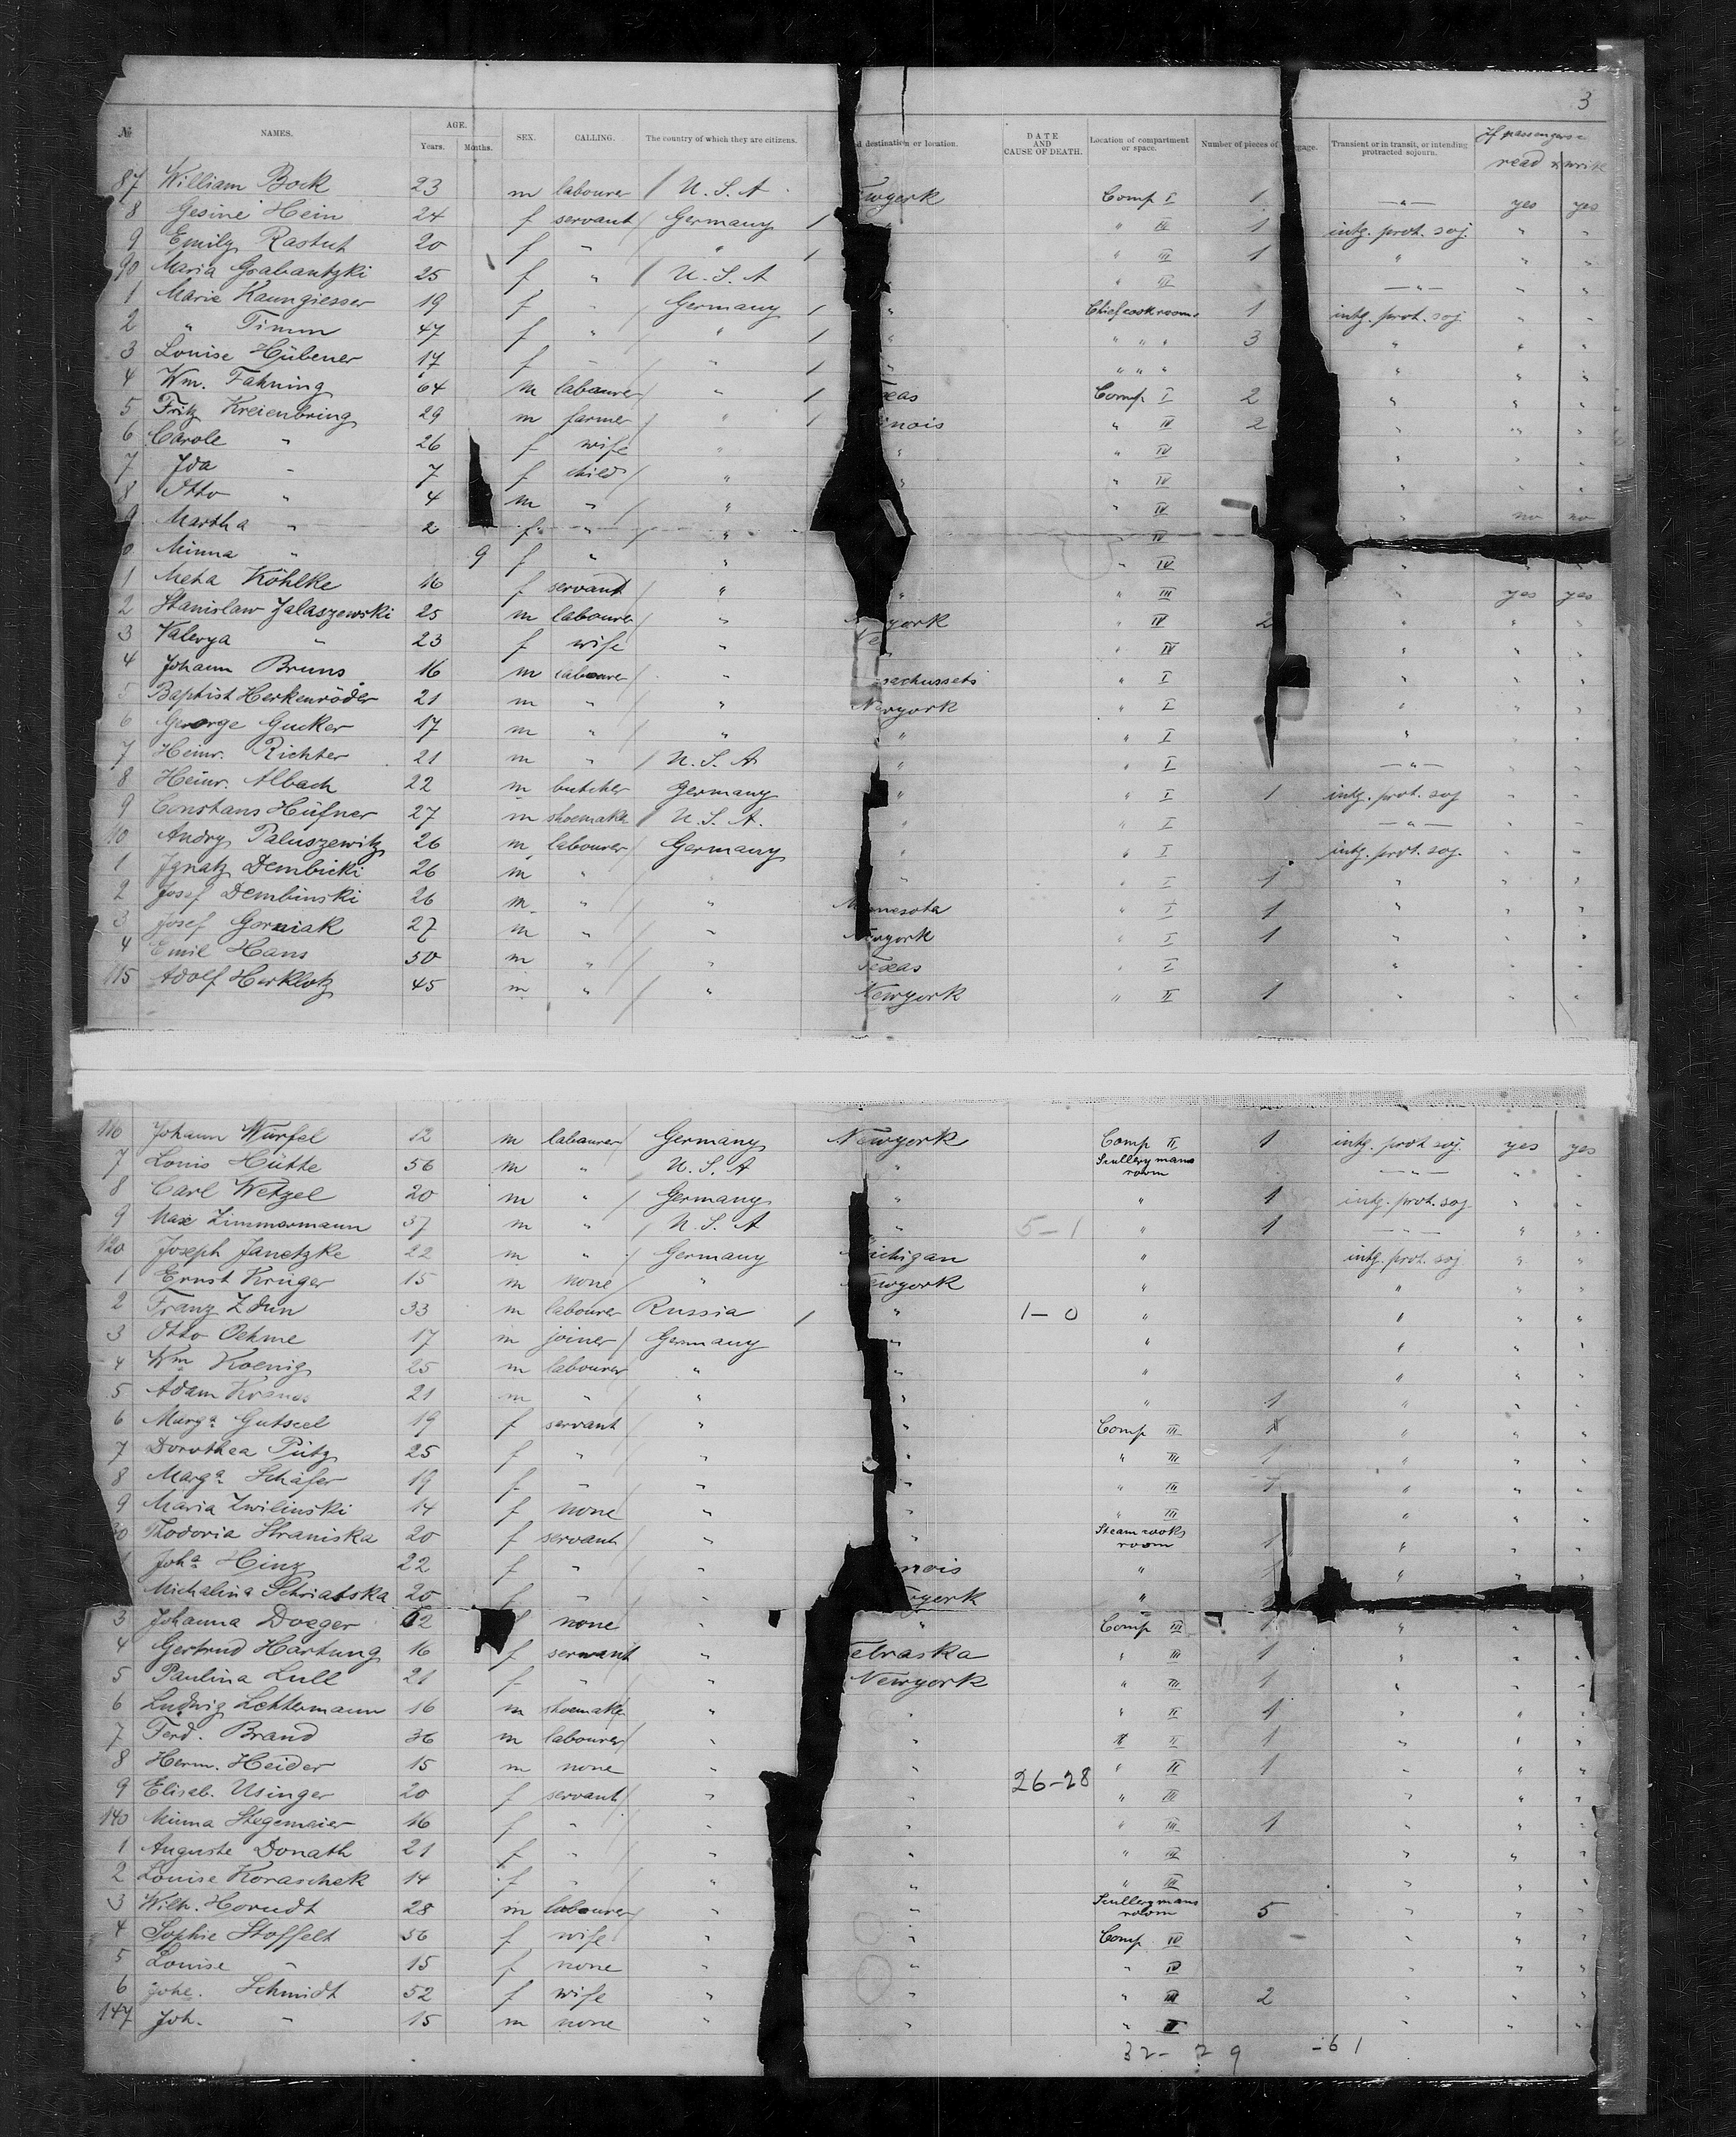 3
№ NAMES. AGE. Years. Months. SEX. CALLING. The country of which they are citizens. d destination or location. DATE AND CAUSE OF DEATH. Location of compartment or space. Number of pieces of ggage. Transient or in transit, or intending protracted sojourn. If passengers read write
87 William Bock 23 m labourer U. S. A. ewyork Comp I 1 —"— yes yes
8 Gesine Hein 24 f servant Germany 1 " III 1 intg. prot. soj. " "
9 Emily Rastut 20 f " " 1 " III 1 " " "
90 Maria Grabantzki 25 f " U. S. A " " III —"— " "
1 Marie Kaungiesser 19 f " Germany 1 " Chief cook rooms 1 intg. prot. soj " "
2 " Timm 47 f " " 1 " " " " 3 " " "
3 Louise Hübener 17 f " " 1 " " " " " " "
4 Wm. Fahning 64 m labourer " 1 exas Comp I 2 " " "
5 Fritz Kreienbring 29 m farmer " 1 inois " IV 2 " " "
6 Carole " 26 f wife " " " IV " " "
7 Ida " 7 f child " " " IV " " "
8 Otto " 4 m " " " IV " no no
9 Martha " 2 f " " " IV
0 Minna " 9 f " " " IV " " "
1 Meta Köhlke 16 f servant " " " III " yes yes
2 Stanislaw Zalaszewski 25 m labourer " N york " IV 2 " " "
3 Valerya " 23 f wife " " " IV " " "
4 Johann Bruns 16 m labourer " sachussets " I " " "
5 Baptist Herkenröder 21 m " " Newyork " I " " "
6 George Gucker 17 m " " " " I " " "
7 Heinr. Richter 21 m " U. S. A " " I —"— " "
8 Heinr. Albach 22 m butcher Germany " " I 1 intg. prot. soj " "
9 Constans Hüfner 27 m shoemaker U. S. A. " " I —"— " "
110 Andry Paluszewitz 26 m labourer Germany " " I intg. prot. soj. " "
1 Ignatz Dembicki 26 m " " " " I 1 " " "
2 Josef Dembinski 26 m " " Minnesota " I 1 " " "
3 Josef Gorniak 27 m " " Newyork " I 1 " " "
4 Emil Hans 50 m " " Texas " I " " "
115 Adolf Herklotz 45 m " " Newyork " II 1 " " "
116 Johann Würfel 12 m labourer Germany Newyork Comp II 1 intg. prot soj. yes yes
7 Louis Hütte 56 m " U. S. A " Scullery mans room —"— " "
8 Carl Wetzel 20 m " Germany " " 1 intg. prot. soj " "
9 Max Zimmermann 37 m " U. S. A " 5-1 " 1 —"— " "
120 Joseph Janetzke 22 m " Germany ichigan " intg. prot. soj " "
1 Ernst Krüger 15 m none " ewyork " " " "
2 Franz Zdun 33 m labourer Russia 1 " 1-0 " " " "
3 Otto Oehme 17 m joiner Germany " " " " "
4 Wm Koenig 25 m labourer " " " " " "
5 Adam 21 m " " " " 1 " " "
6 Marga. Gutseel 19 f servant " " Comp III " " "
7 Dorothea Pütz 25 f " " " " III 1 " " "
8 Marga. Schäfer 19 f " " " " III 1 " " "
9 Maria Zwilinski 14 f none " " " III " " "
30 Thodoria Straniska 20 f servant " " Steam cooks room 1 " " "
1 Joha. Hinz 22 f " " nois " 1 " " "
Michalina Schriatska 20 f " " yerk "
3 Johanna Doeger 62 f none " " Comp III 1 " " "
4 Gertrud Hartung 16 f servant " ebraska " III 1 " " "
5 Paulina Lull 21 f " " Newyork " III 1 " " "
6 Ludwig Lettermann 16 m shoemaker " " " II 1 " " "
7 Ferd. Brand 36 m labourer " " " II 1 " " "
8 Herm. Heider 15 m none " " " II 1 " " "
9 Eliseb. Usinger 20 f servant " " 26-28 " III " " "
140 Minna Stegemaier 16 f " " " " III 1 " " "
1 Auguste Donath 21 f " " " " III " " "
2 Louise Koraschek 14 f " " " " III " " "
3 Wilh. Horndt 28 m labourer " " Scullery mans room 5 " " "
4 Sophie Stoffelt 56 f wife " " Comp IV " " "
5 Louise " 15 f none " " " IV " " "
6 Johe. Schmidt 52 f wife " " " III 2 " " "
147 Joh. " 15 m none " " " II " " "
32- 29 -61